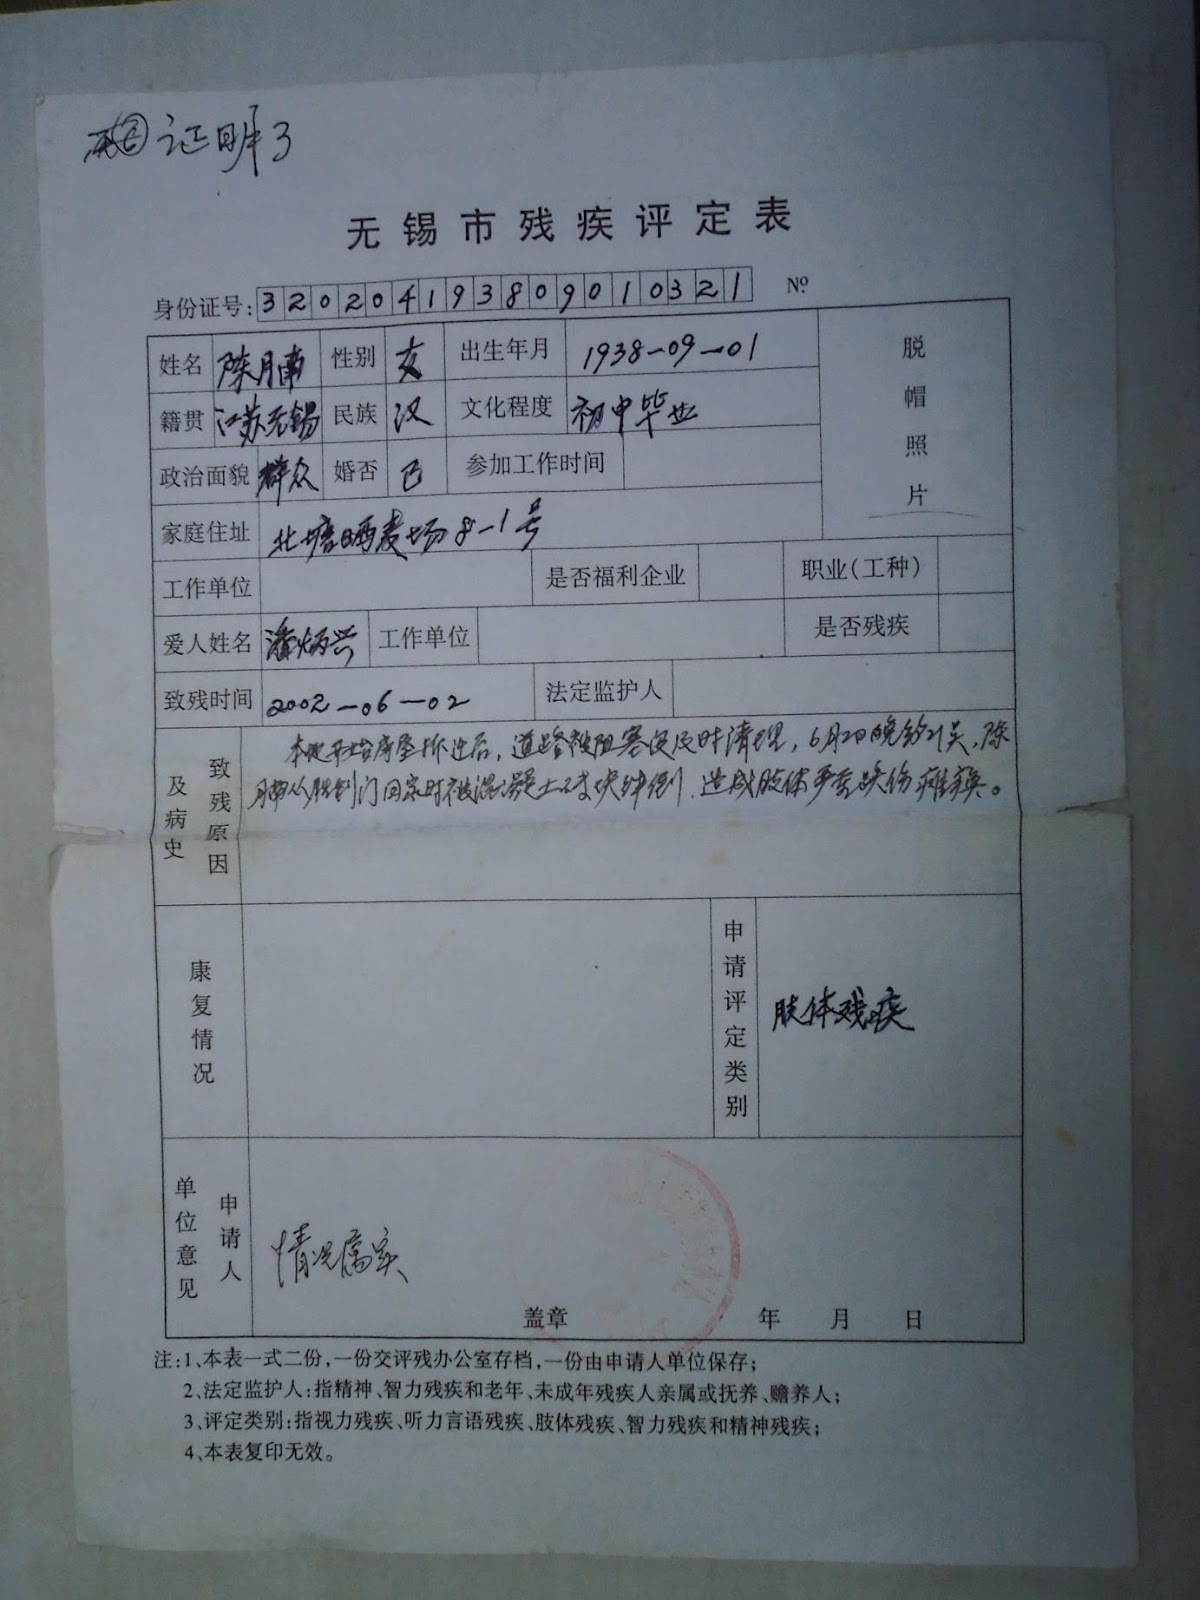 证明3
无锡市残疾评定表
身份证号: 320204193809010321 №
姓名 陈月南 性别 女 出生年月 1938-09-01
脱帽照片
籍贯 江苏无锡 民族 汉 文化程度 初中毕业
政治面貌 群众 婚否 已 参加工作时间
家庭住址 北塘晒麦场8-1号
工作单位 是否福利企业 职业(工种)
爱人姓名 潘炳兴 工作单位 是否残疾
致残时间 2002-06-02 法定监护人
致残原因及病史
房屋拆迁后,道路被阻塞没及时清理,6月2日晚
回家时被混凝土 块绊倒,造成肢体严重跌伤瘫痪。
康复情况
申请评定类别 肢体残疾
申请人单位意见
情况属实
盖章 年 月 日
注:1、本表一式二份,一份交评残办公室存档,一份由申请人单位保存;
2、法定监护人:指精神、智力残疾和老年、未成年残疾人亲属或抚养、赡养人;
3、评定类别:指视力残疾、听力言语残疾、肢体残疾、智力残疾和精神残疾;
4、本表复印无效。